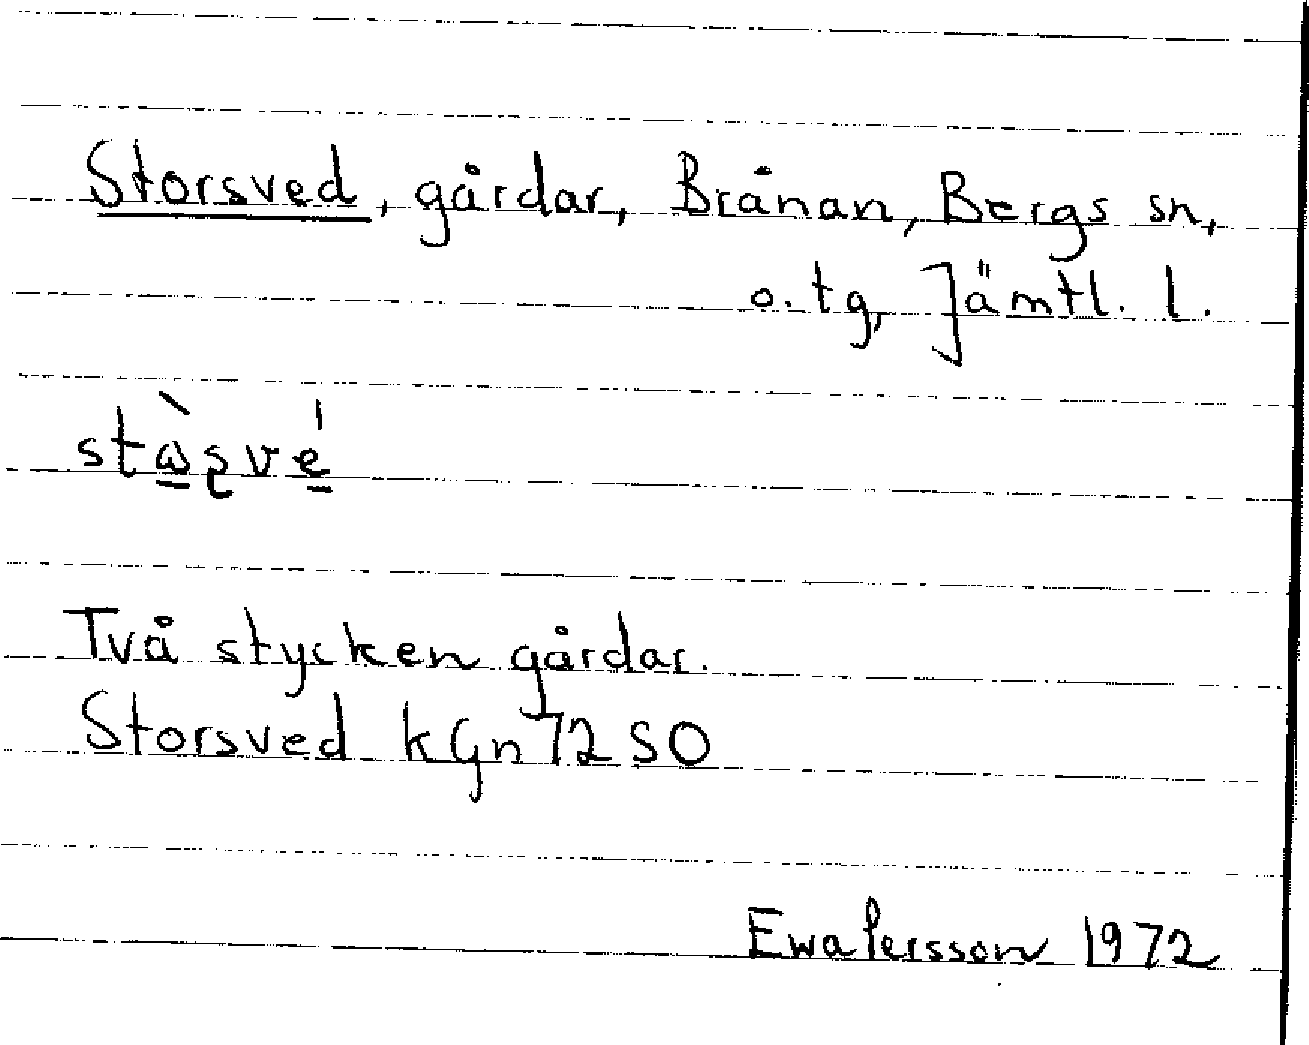 Storsved, gårdar, Brånan, Bergs sn,
o. tg, Jämtl. l.
Två stycken gårdar.
Storsved kGn 72 SO
Ewa Persson 1972